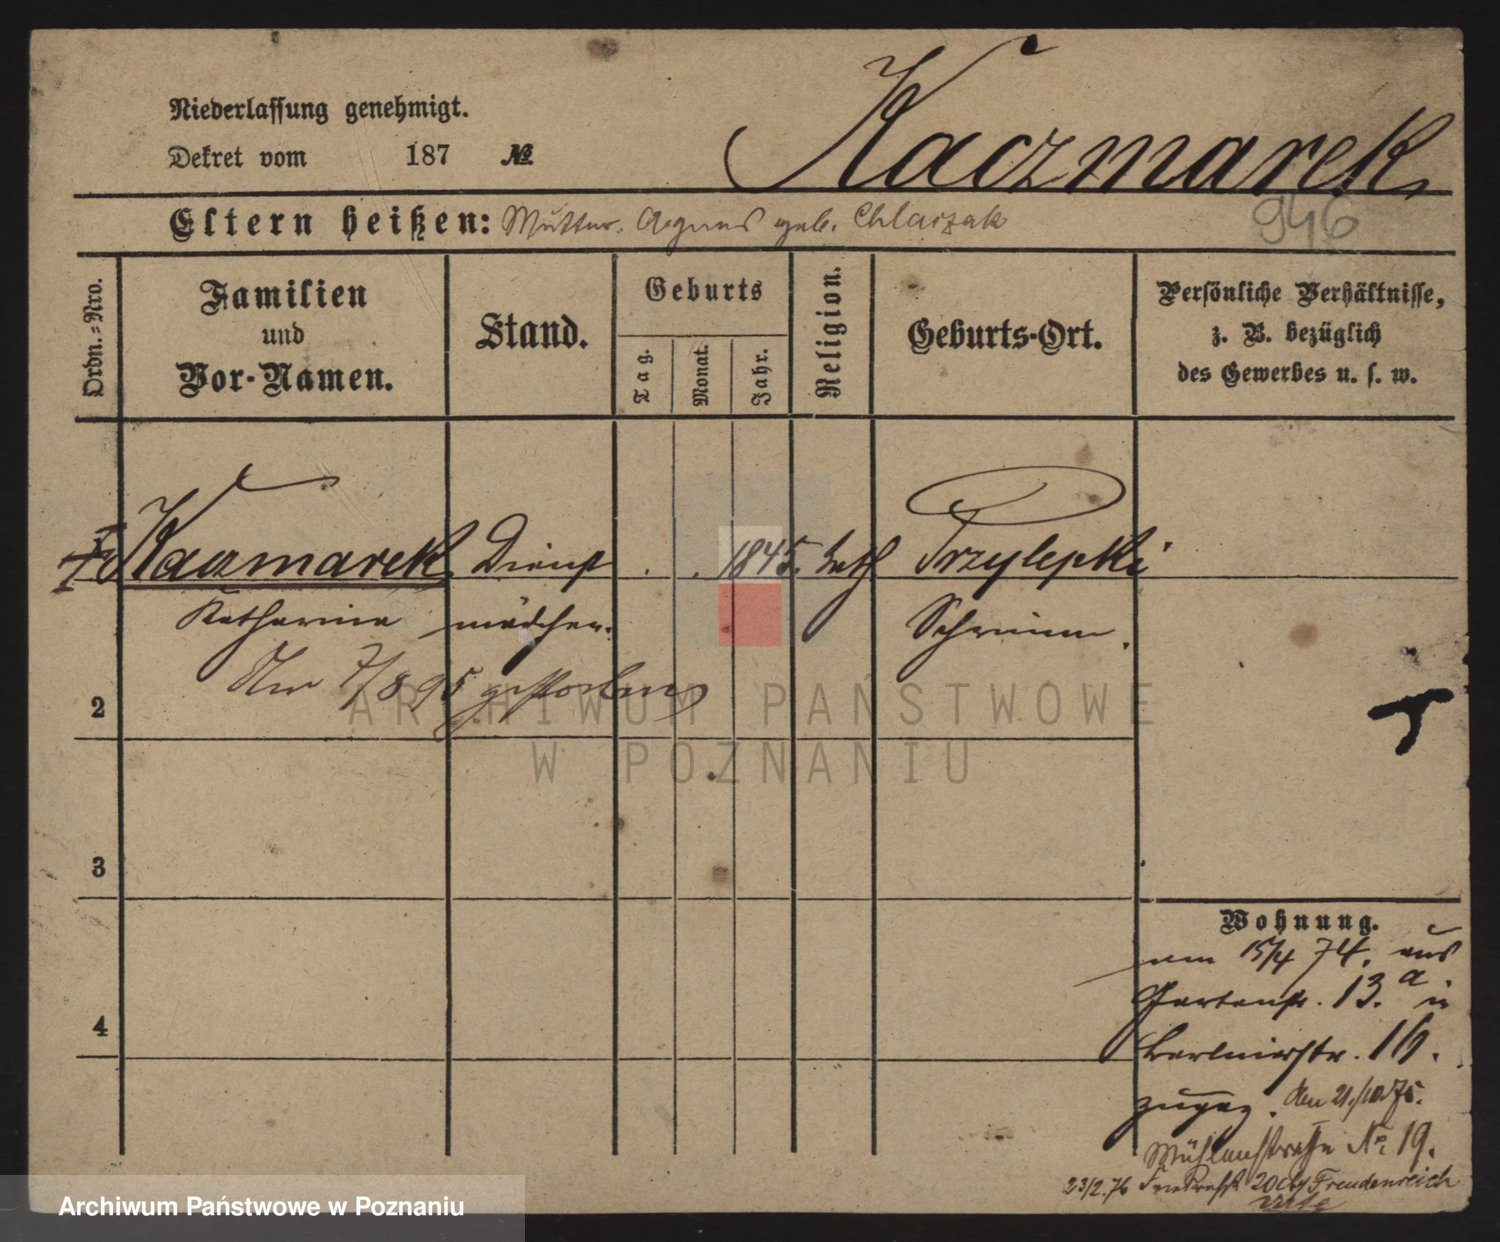 Kaczmarek
Niederlassung genehmigt.
Dekret vom 187 №
Eltern heißen: Mutter. Agnes geb. Chlaszak
946
Ordn.-Nro.
Familien
und
Vor-Namen.
Stand.
Geburts
Tag.
Monat.
Jahr.
Religion.
Geburts-Ort.
Persönliche Verhältnisse,
z. B. bezüglich
des Gewerbes u. s. w.
1 Kaczmarek Dienst 1845. kath Przylepki
Katharina mädchen. Schrimm.
7/8 95 gestorben
2
3
4
Wohnung.
am 15/4 74. aus
Gartenstr. 13.a in
Berlinerstr. 16.
zugez. den 21/10 75.
Mühlenstraße No 19.
23/2.76 20 bei Freudenreich
ARCHIWUM PAŃSTWOWE
W POZNANIU
Archiwum Państwowe w Poznaniu